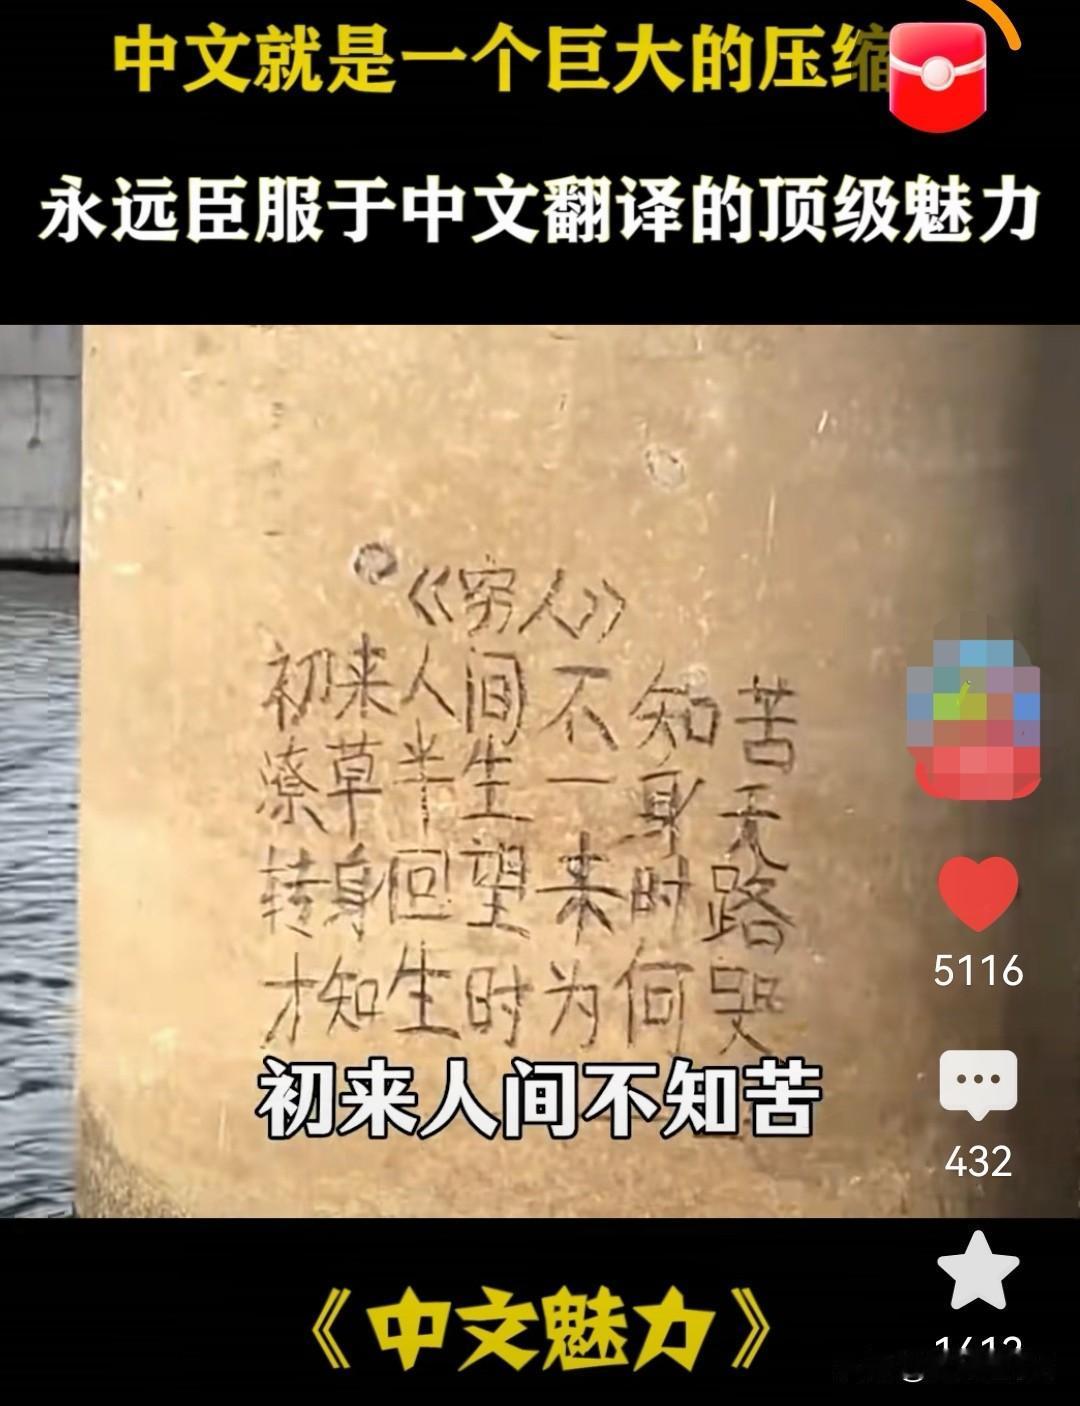 中文就是一个巨大的压缩
永远臣服于中文翻译的顶级魅力
《穷人》
初来人间不知苦
潦草半生一身无
转身回望来时路
才知生时为何哭
初来人间不知苦
5116
432
《中文魅力》